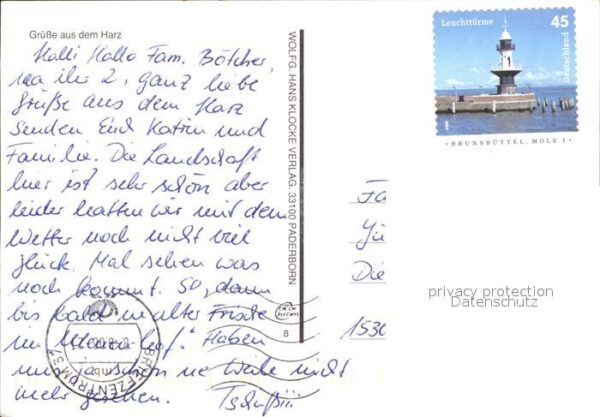 Grüße aus dem Harz
Halli Hallo Fam. Bölcher,
na ihr 2, ganz liebe
Grüße aus dem Harz
senden Euch Katrin und
Familie. Die Landschaft
hier ist sehr schön aber
leider hatten wir mit dem
Wetter noch nicht viel
Glück. Mal sehen was
noch kommt. So, dann
bis bald in alter Frische
im
Haben
uns ja schon ne Weile nicht
mehr gesehen. Tschüß...
WOLFG. HANS KLOCKE VERLAG, 33100 PADERBORN
8
BRIEFZENTRUM 37
Leuchttürme
45
Deutschland
BRUNSBÜTTEL, MOLE 1
Fa
Die
1530
privacy protection
Datenschutz